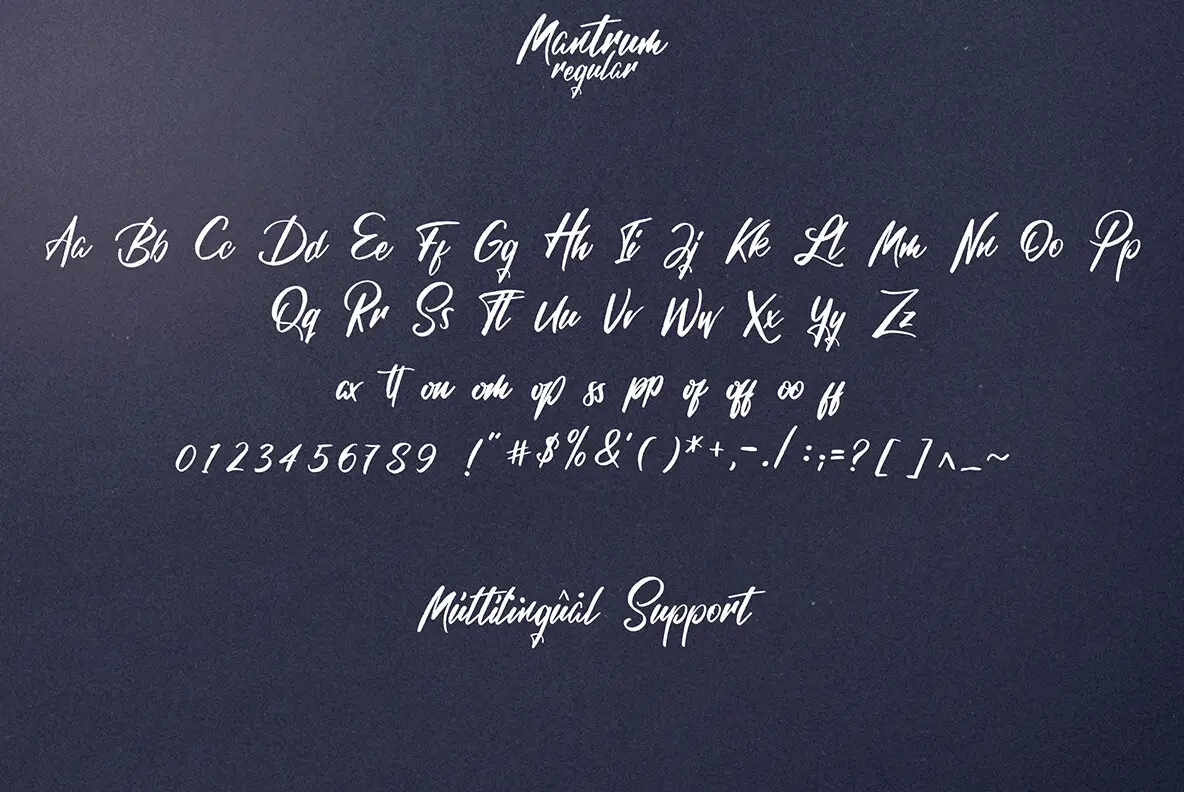 Mantrum
regular
Aa Bb Cc Dd Ee Ff Gg Hh Ii Jj Kk Ll Mm Nn Oo Pp
Qq Rr Ss Tt Uu Vv Ww Xx Yy Zz
ax tt ou om op ss pp of off oo ff
0123456789 !"#$%&'()*+,-./:;=?[]^_~
Múltilingûål Support